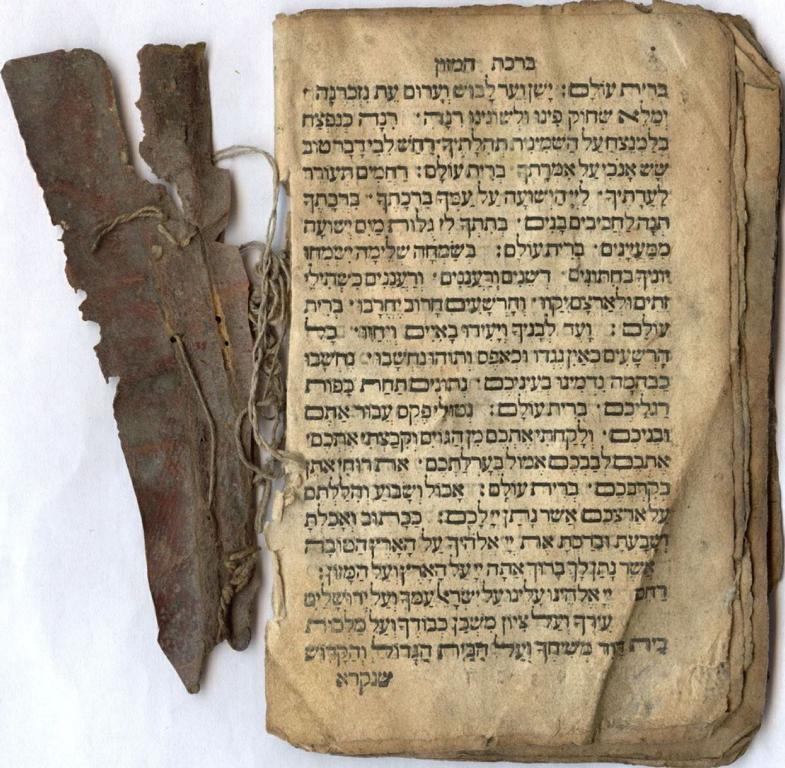 ברכת המזון
ברית עולם: ישן וער לבוש וערום עת נזכרנה
ימלא שחוק פינו ולשונינו רנה · רנה כנפצח
בלמנצח על השמינית תהלתיך רחש לבי דבר טוב
שש אנכי על אמרתך · ברית עולם: רחמים תעורר
לעדתיך · ליי הישועה על עמך ברכתך · ברכתך
תנה לחביבים בנים · בתתך לי גלות מים ישועה
ממעיינים · ברית עולם: בשמחה שלימה ישמחו
יוניך בחתונים · דשנים ורעננים · ורעננים כשתילי
זתים ולארצם יקוו · והרשעים חרוב יחרבו · ברית
עולם: ועד לבניך ויעידו באיים ויחוו · כל
הרשעים כאין נגדו וכאפס ותוהו נחשבו · נחשבו
כבהמה נדמינו בעיניכם · נתונים תחת כפות
רגליכם · ברית עולם: אתם
ובניכם · ולקחתי אתכם מן הגוים וקבצתי אתכם ·
אתכם לבבכם אמול בערלתכם · את רוחי אתן
בקרבכם · ברית עולם: אכול ושבוע והללתם
על ארצכם אשר נתן יי לכם: ככתוב ואכלת
ושבעת וברכת את יי אלהיך על הארץ הטובה
אשר נתן לך ברוך אתה יי על הארץ ועל המזון:
רחם יי אלהינו עלינו על ישראל עמך ועל ירושלים
עירך ועל ציון משכן כבודך ועל מלכות
בית דוד משיחך ועל הבית הגדול והקדוש
שנקרא